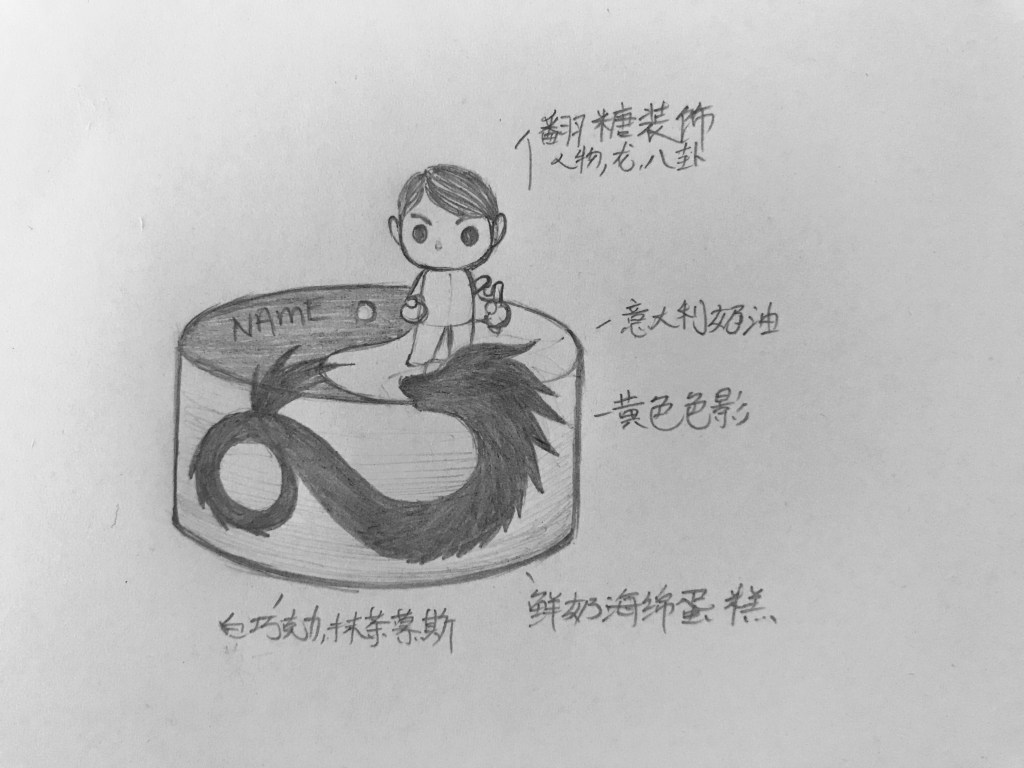 翻糖装饰
人物,龙,八卦
NAME
意大利奶油
黄色色影
白巧克力,抹茶慕斯
鲜奶海绵蛋糕